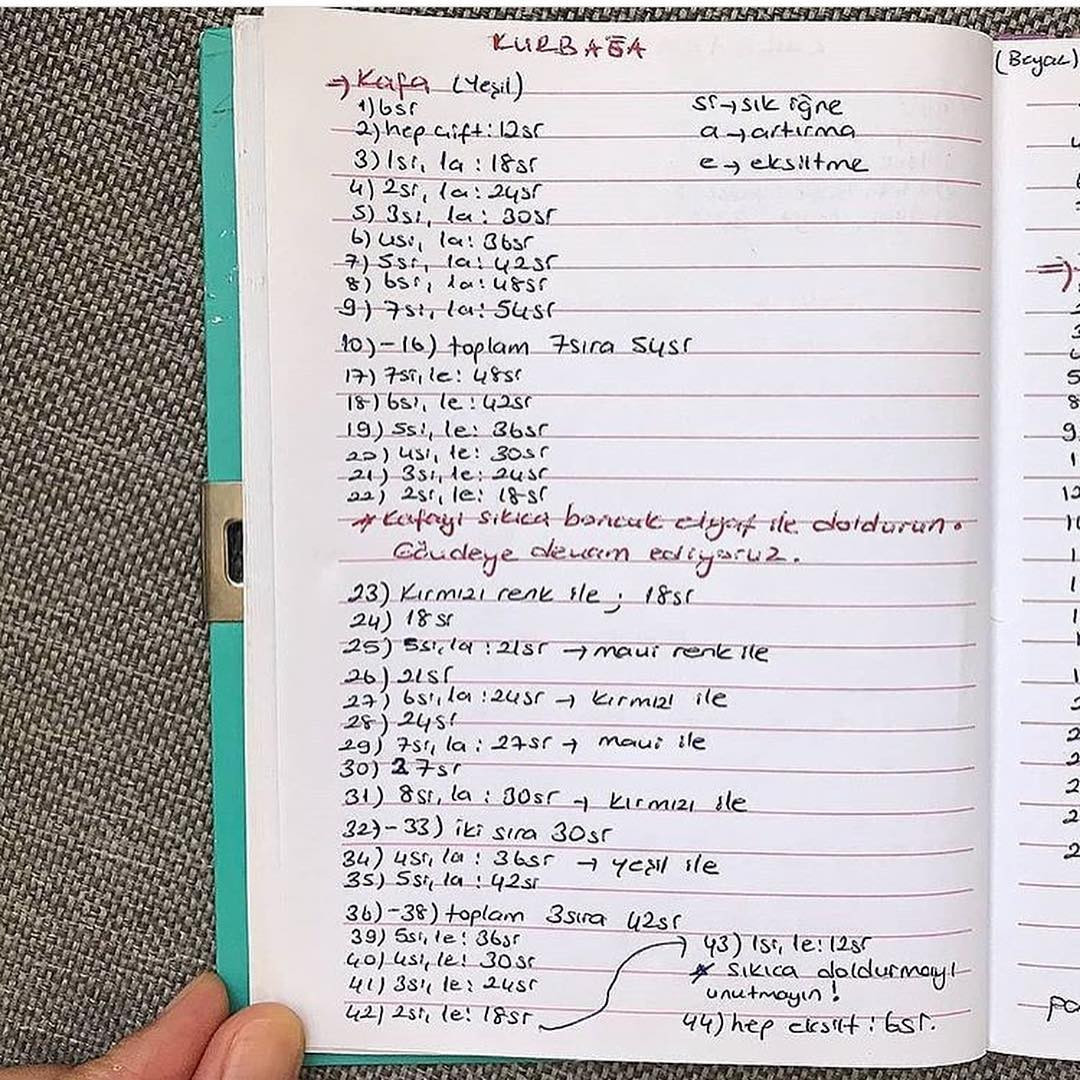 KURBAĞA
→ Kafa (Yeşil)
1) 6sr
2) hep çift : 12sr
3) 1sr, 1a : 18sr
4) 2sr, 1a : 24sr
5) 3sr, 1a : 30sr
6) 4sr, 1a : 36sr
7) 5sr, 1a : 42sr
8) 6sr, 1a : 48sr
9) 7sr, 1a : 54sr
10)-16) toplam 7sıra 54sr
17) 7sr, 1e : 48sr
18) 6sr, 1e : 42sr
19) 5sr, 1e : 36sr
20) 4sr, 1e : 30sr
21) 3sr, 1e : 24sr
22) 2sr, 1e : 18sr
* Kafayı sıkıca boncuk elyaf ile doldurun.
Gövdeye devam ediyoruz.
23) Kırmızı renk ile ; 18sr
24) 18sr
25) 5sr, 1a : 21sr → mavi renk ile
26) 21sr
27) 6sr, 1a : 24sr → kırmızı ile
28) 24sr
29) 7sr, 1a : 27sr → mavi ile
30) 27sr
31) 8sr, 1a : 30sr → kırmızı ile
32)-33) iki sıra 30sr
34) 4sr, 1a : 36sr → yeşil ile
35) 5sr, 1a : 42sr
36)-38) toplam 3sıra 42sr
39) 5sr, 1e : 36sr
40) 4sr, 1e : 30sr
41) 3sr, 1e : 24sr
42) 2sr, 1e : 18sr
→ 43) 1sr, 1e : 12sr
* sıkıca doldurmayı
unutmayın !
44) hep eksilt : 6sr.
sr → sık iğne
a → artırma
e → eksiltme
(Beyaz)